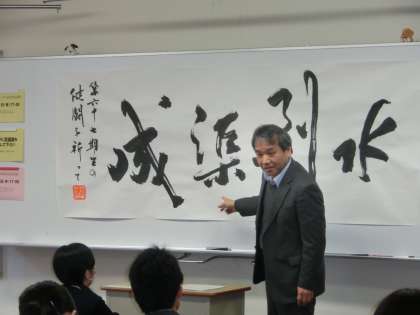 水到渠成
第六十七期生の
健闘を祈って